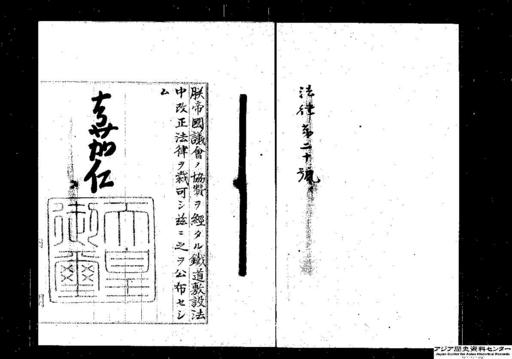 法律第二十號
朕帝國議會ノ協贊ヲ經タル鐵道敷設法
中改正法律ヲ裁可シ玆ニ之ヲ公布セシ
ム
嘉仁
天皇
御璽
アジア歴史資料センター
Japan Center for Asian Historical Records